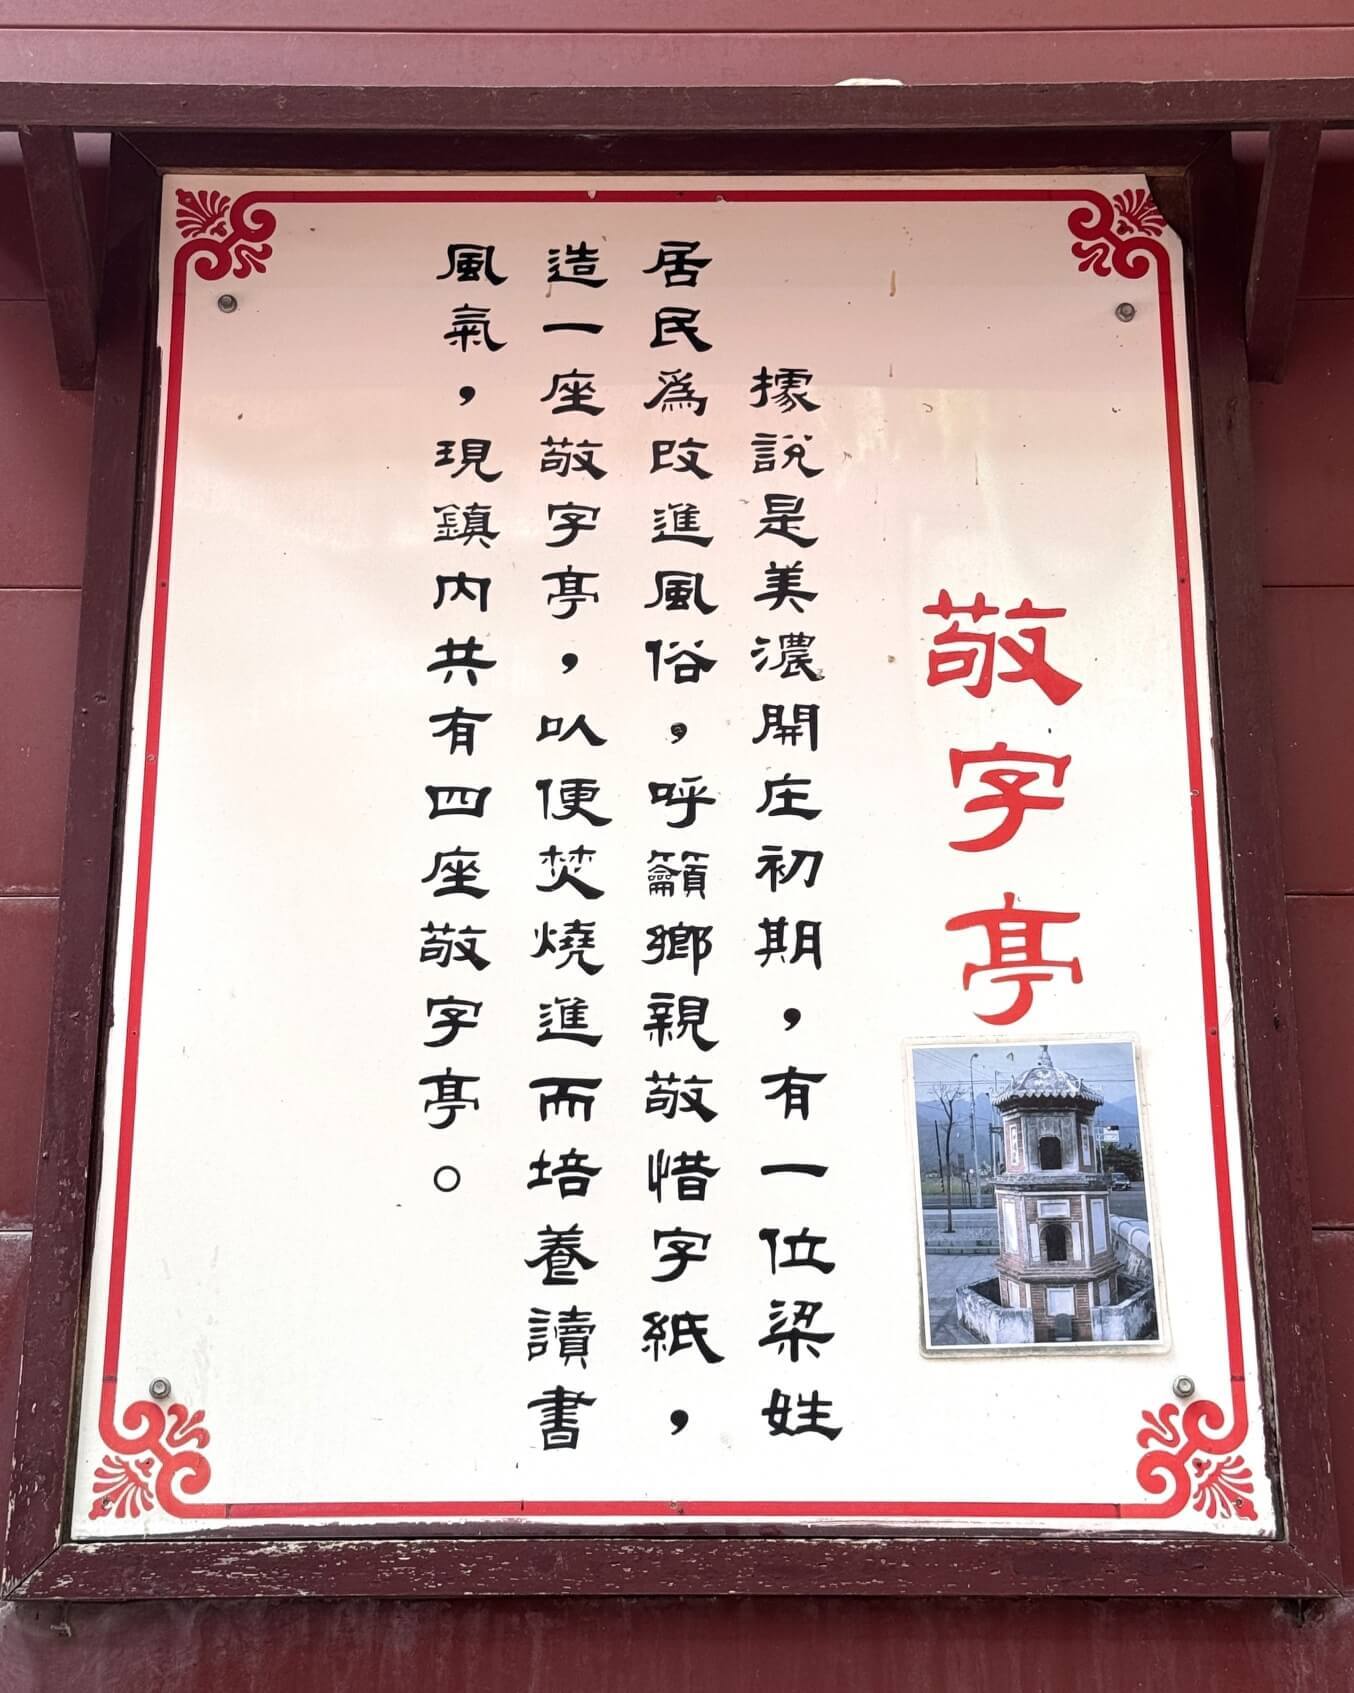 敬字亭
據說是美濃開庄初期，有一位梁姓
居民為改進風俗，呼籲鄉親敬惜字紙，
造一座敬字亭，以便焚燒進而培養讀書
風氣，現鎮內共有四座敬字亭。